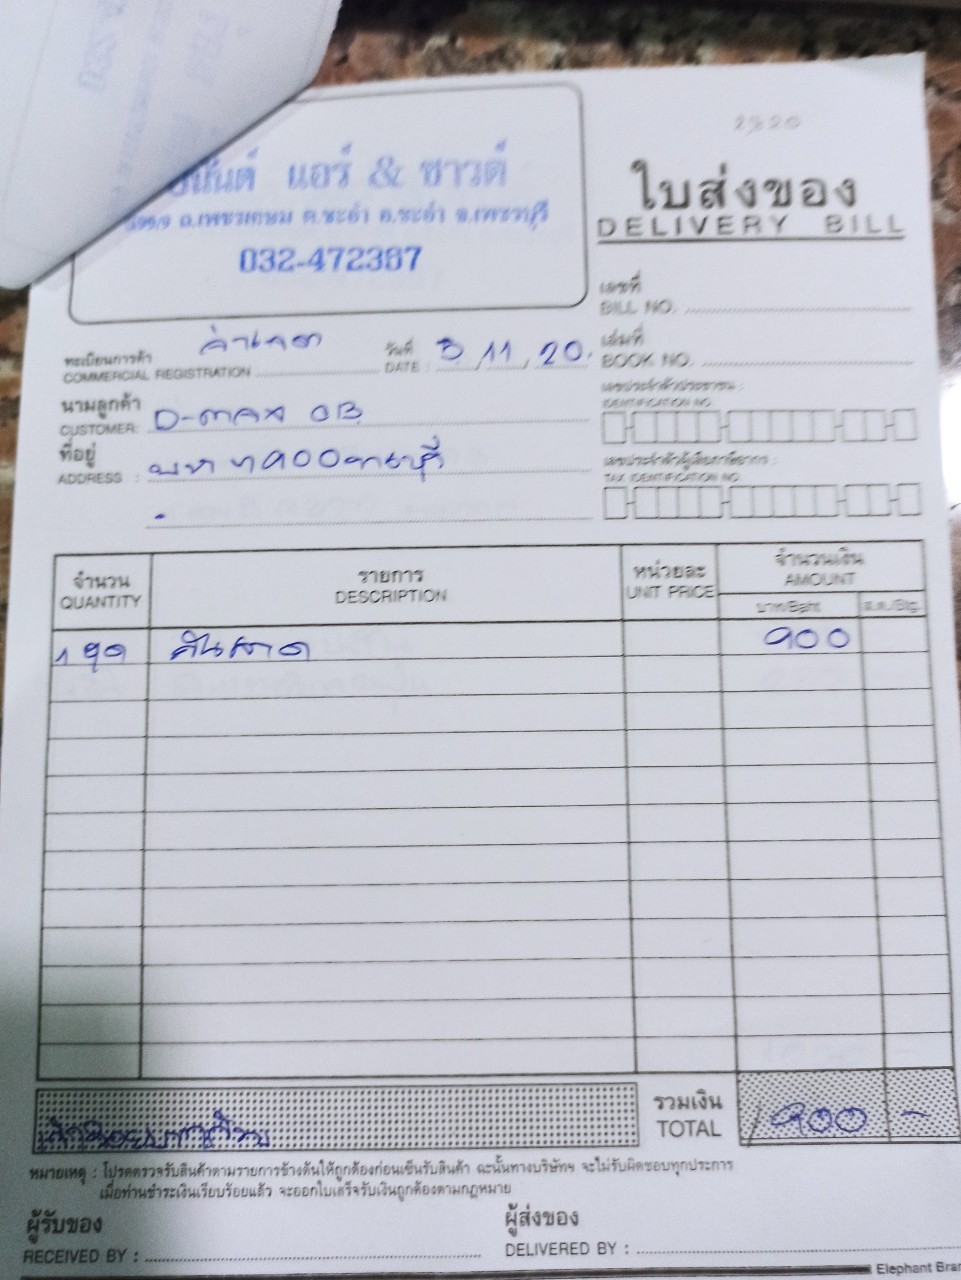 2820
แอร์ & ซาวด์
ใบส่งของ
DELIVERY BILL
ถ.เพชรเกษม ต.ชะอำ อ.ชะอำ จ.เพชรบุรี
032-472387
เลขที่
BILL NO.
ทะเบียนการค้า
COMMERCIAL REGISTRATION
วันที่
DATE : 3 / 11 / 20.
เล่มที่
BOOK NO.
นามลูกค้า
CUSTOMER: D-
เลขประจำตัวประชาชน :
IDENTIFICATION NO.
ที่อยู่
ADDRESS :
เลขประจำตัวผู้เสียภาษีอากร :
TAX IDENTIFICATION NO.
จำนวน
QUANTITY
รายการ
DESCRIPTION
หน่วยละ
UNIT PRICE
จำนวนเงิน
AMOUNT
บาท/Baht
ส.ต./Stg.
1 ชุด 900
รวมเงิน
TOTAL
900 -
หมายเหตุ : โปรดตรวจรับสินค้าตามรายการข้างต้นให้ถูกต้องก่อนเซ็นรับสินค้า ฉะนั้นทางบริษัทฯ จะไม่รับผิดชอบทุกประการ
เมื่อท่านชำระเงินเรียบร้อยแล้ว จะออกใบเสร็จรับเงินถูกต้องตามกฎหมาย
ผู้รับของ
RECEIVED BY :
ผู้ส่งของ
DELIVERED BY :
Elephant Bran